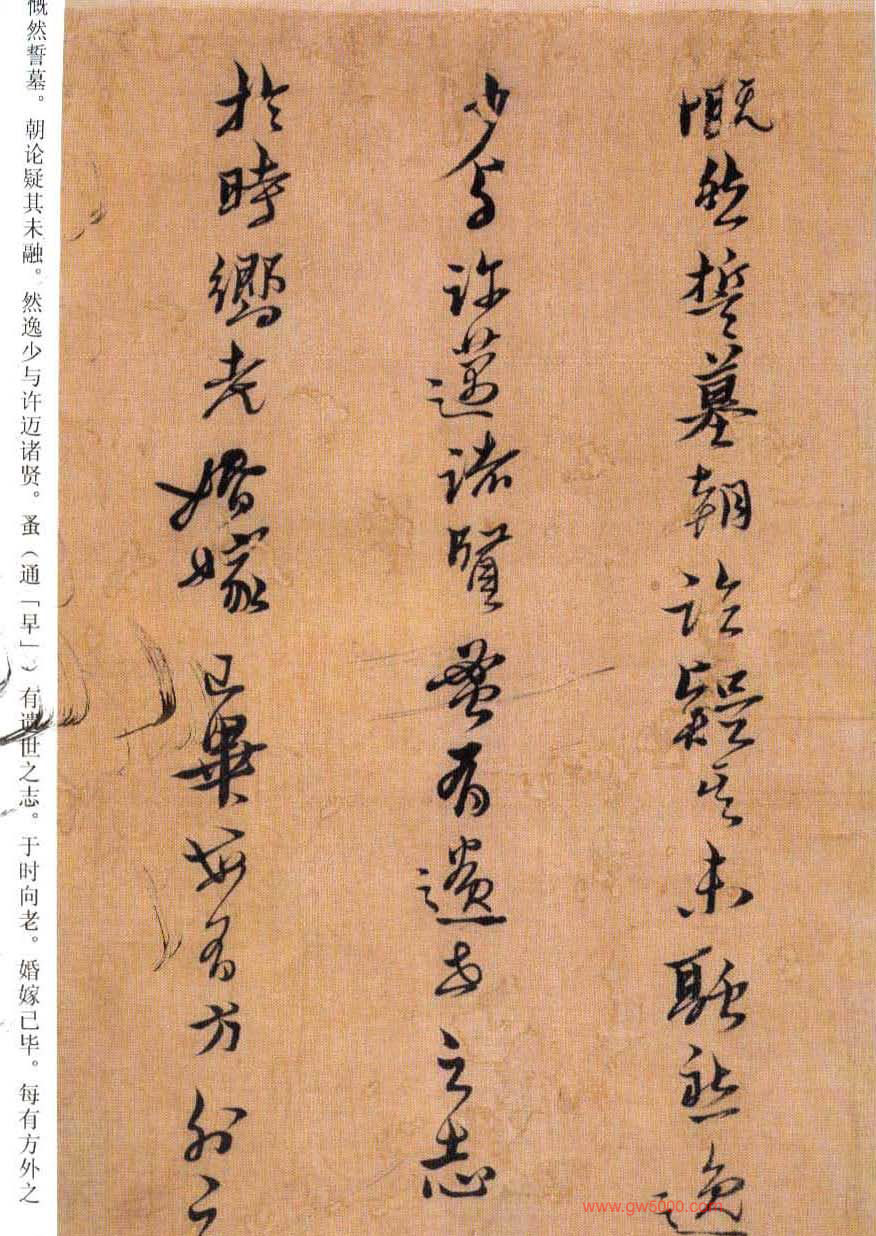 慨然誓墓朝论疑其未融然逸
少与許邁诸賢蚤有遗世之志
於時嚮老婚嫁已畢每有方外之
慨然誓墓。朝论疑其未融。然逸少与许迈诸贤。蚤（通「早」）有遗世之志。于时向老。婚嫁已毕。每有方外之
www.gw5000.com